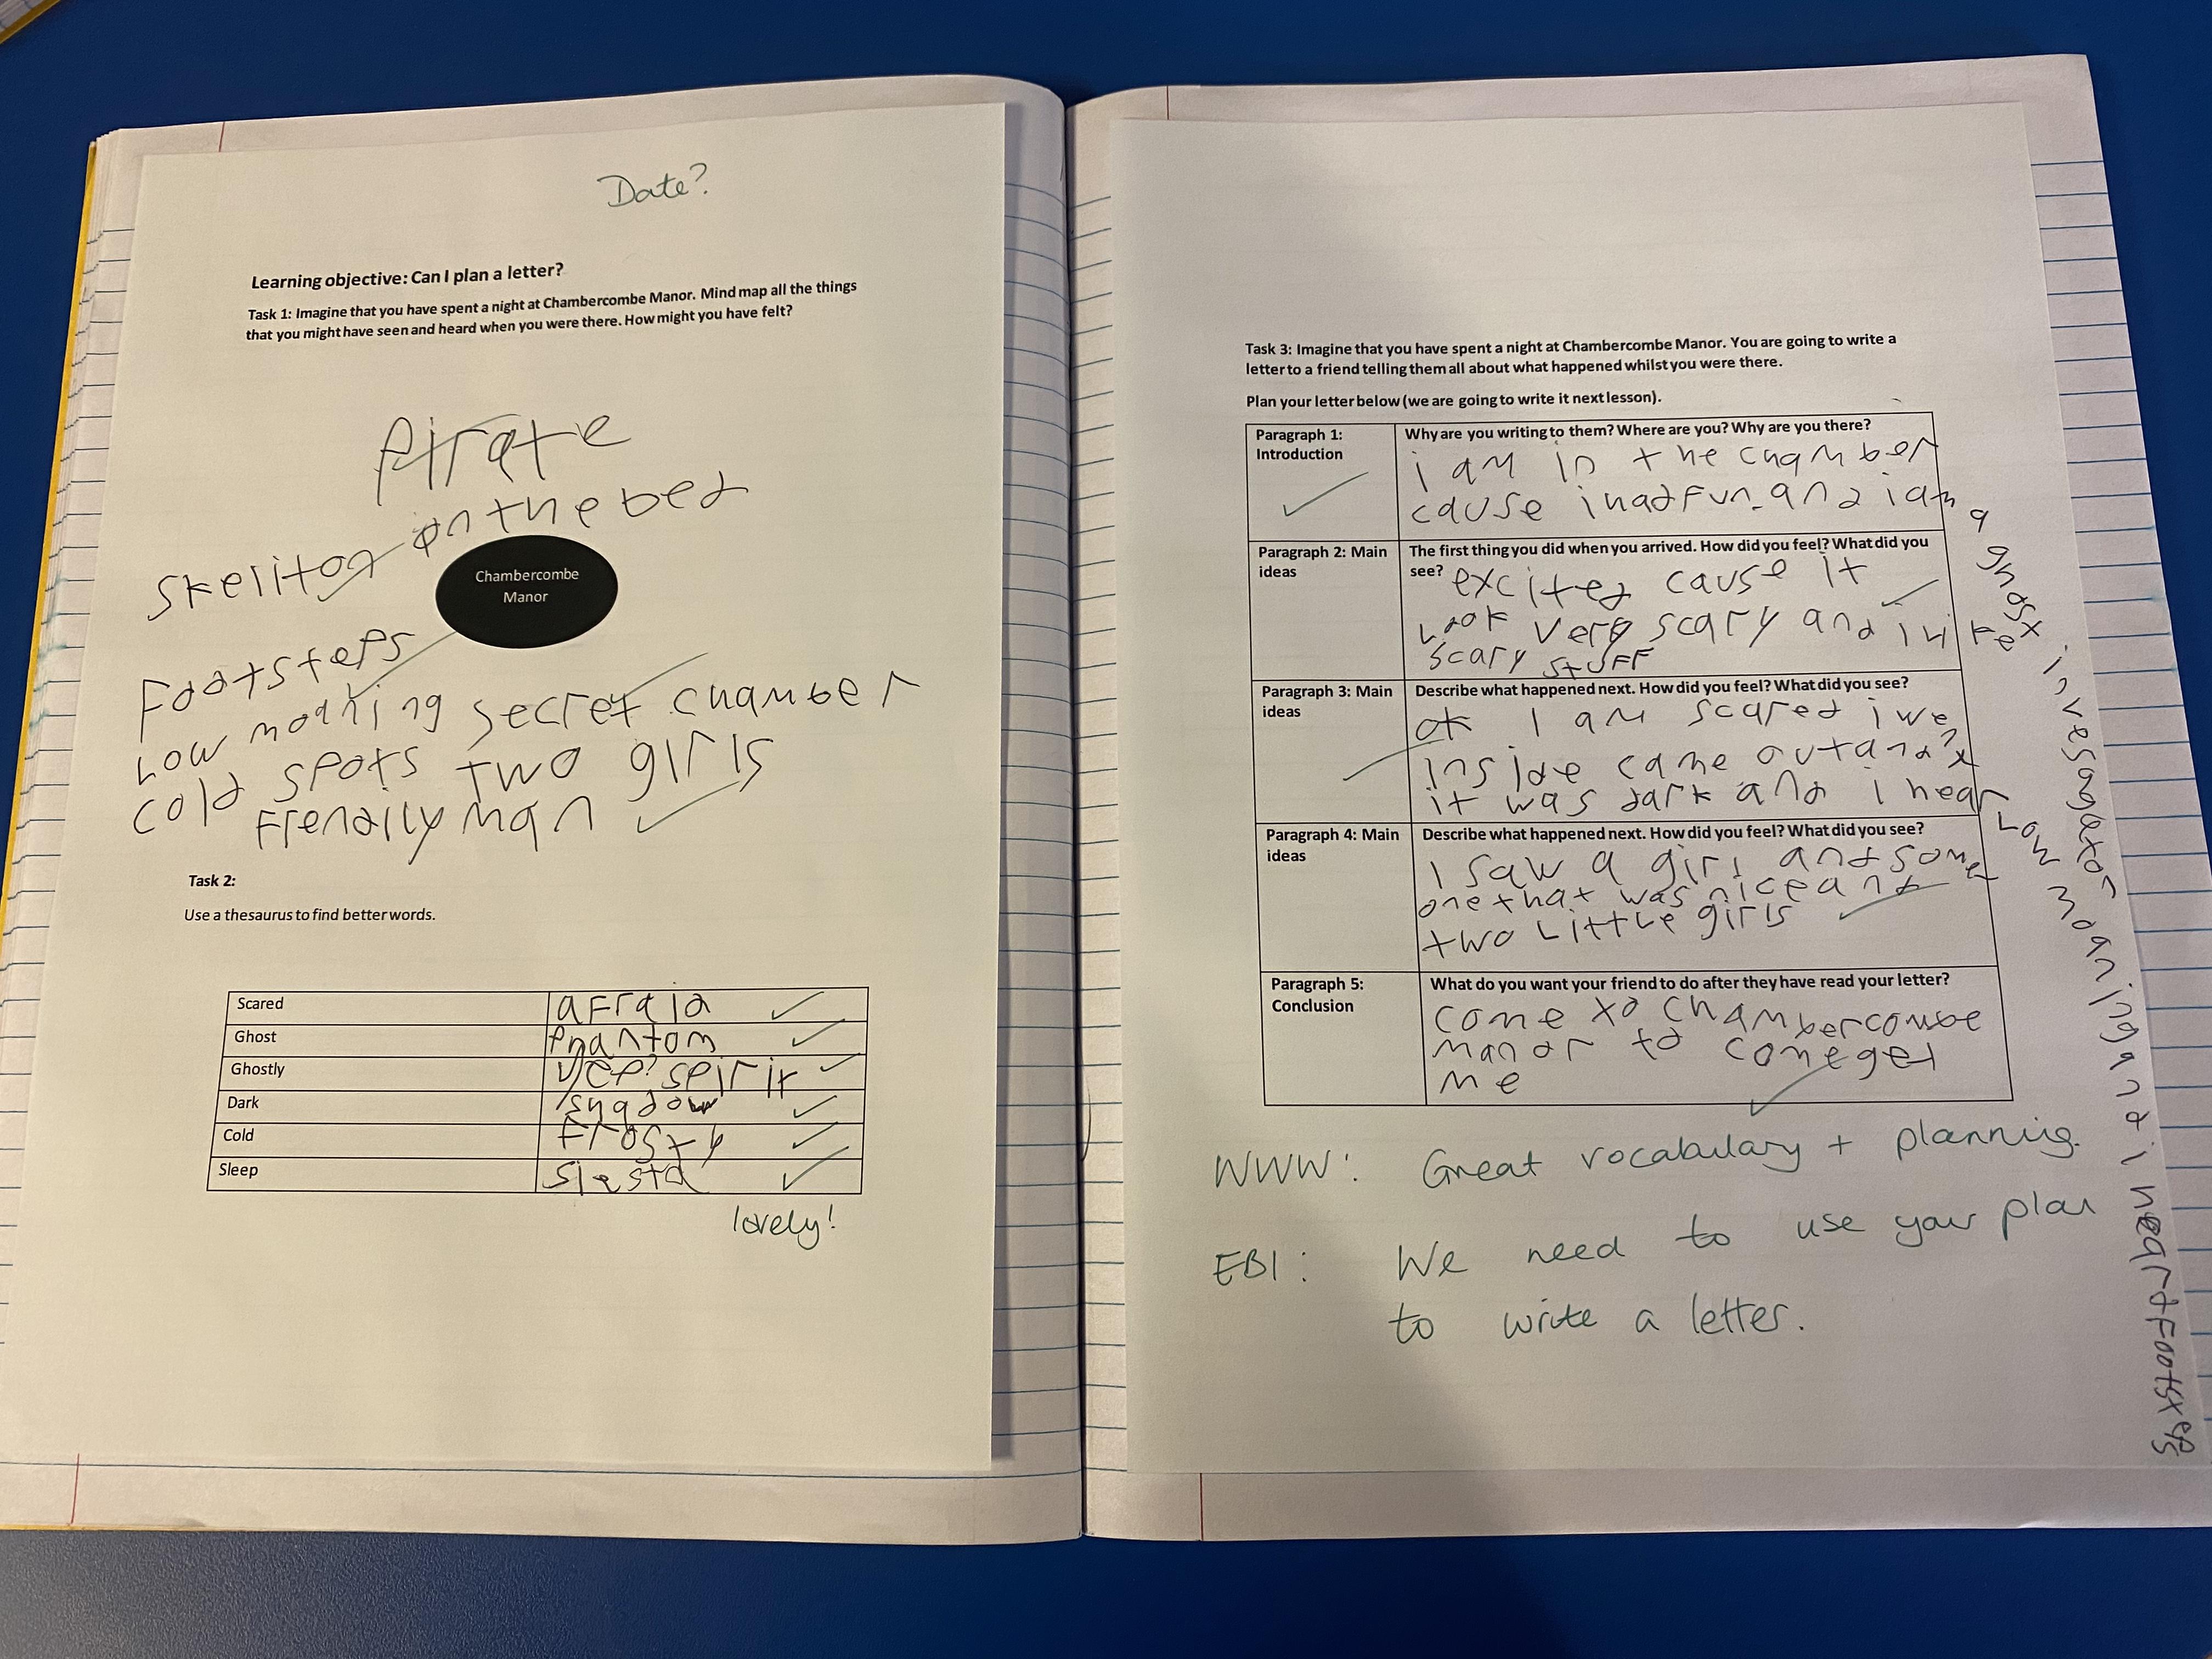 Date?
Learning objective: Can I plan a letter?
Task 1: Imagine that you have spent a night at Chambercombe Manor. Mind map all the things
that you might have seen and heard when you were there. How might you have felt?
Pirate
Skeliton on the bed
Chambercombe
Manor
Footsteps
Low moaning secret chamber
cold spots two girls
Frenailly man
Task 2:
Use a thesaurus to find better words.
Scared afraid
Ghost Phantom
Ghostly spirit
Dark shadow
Cold Frosty
Sleep Siesta
lovely!
Task 3: Imagine that you have spent a night at Chambercombe Manor. You are going to write a
letter to a friend telling them all about what happened whilst you were there.
Plan your letter below (we are going to write it next lesson).
Paragraph 1:
Introduction
Why are you writing to them? Where are you? Why are you there?
i am in the chamber
cause i had fun. and i am a ghost invesagator
Paragraph 2: Main
ideas
The first thing you did when you arrived. How did you feel? What did you
see? excited cause it
Look very scary and i like
scary stuff
Paragraph 3: Main
ideas
Describe what happened next. How did you feel? What did you see?
ok I am scared i went
inside came out and
it was dark and i hear Low moaning and i heard Footsteps
Paragraph 4: Main
ideas
Describe what happened next. How did you feel? What did you see?
I saw a girl and some
one that was nice and
two Little girls
Paragraph 5:
Conclusion
What do you want your friend to do after they have read your letter?
come to chambercombe
manor to come get
me
WWW: Great vocabulary + planning.
EBI: We need to use your plan
to write a letter.